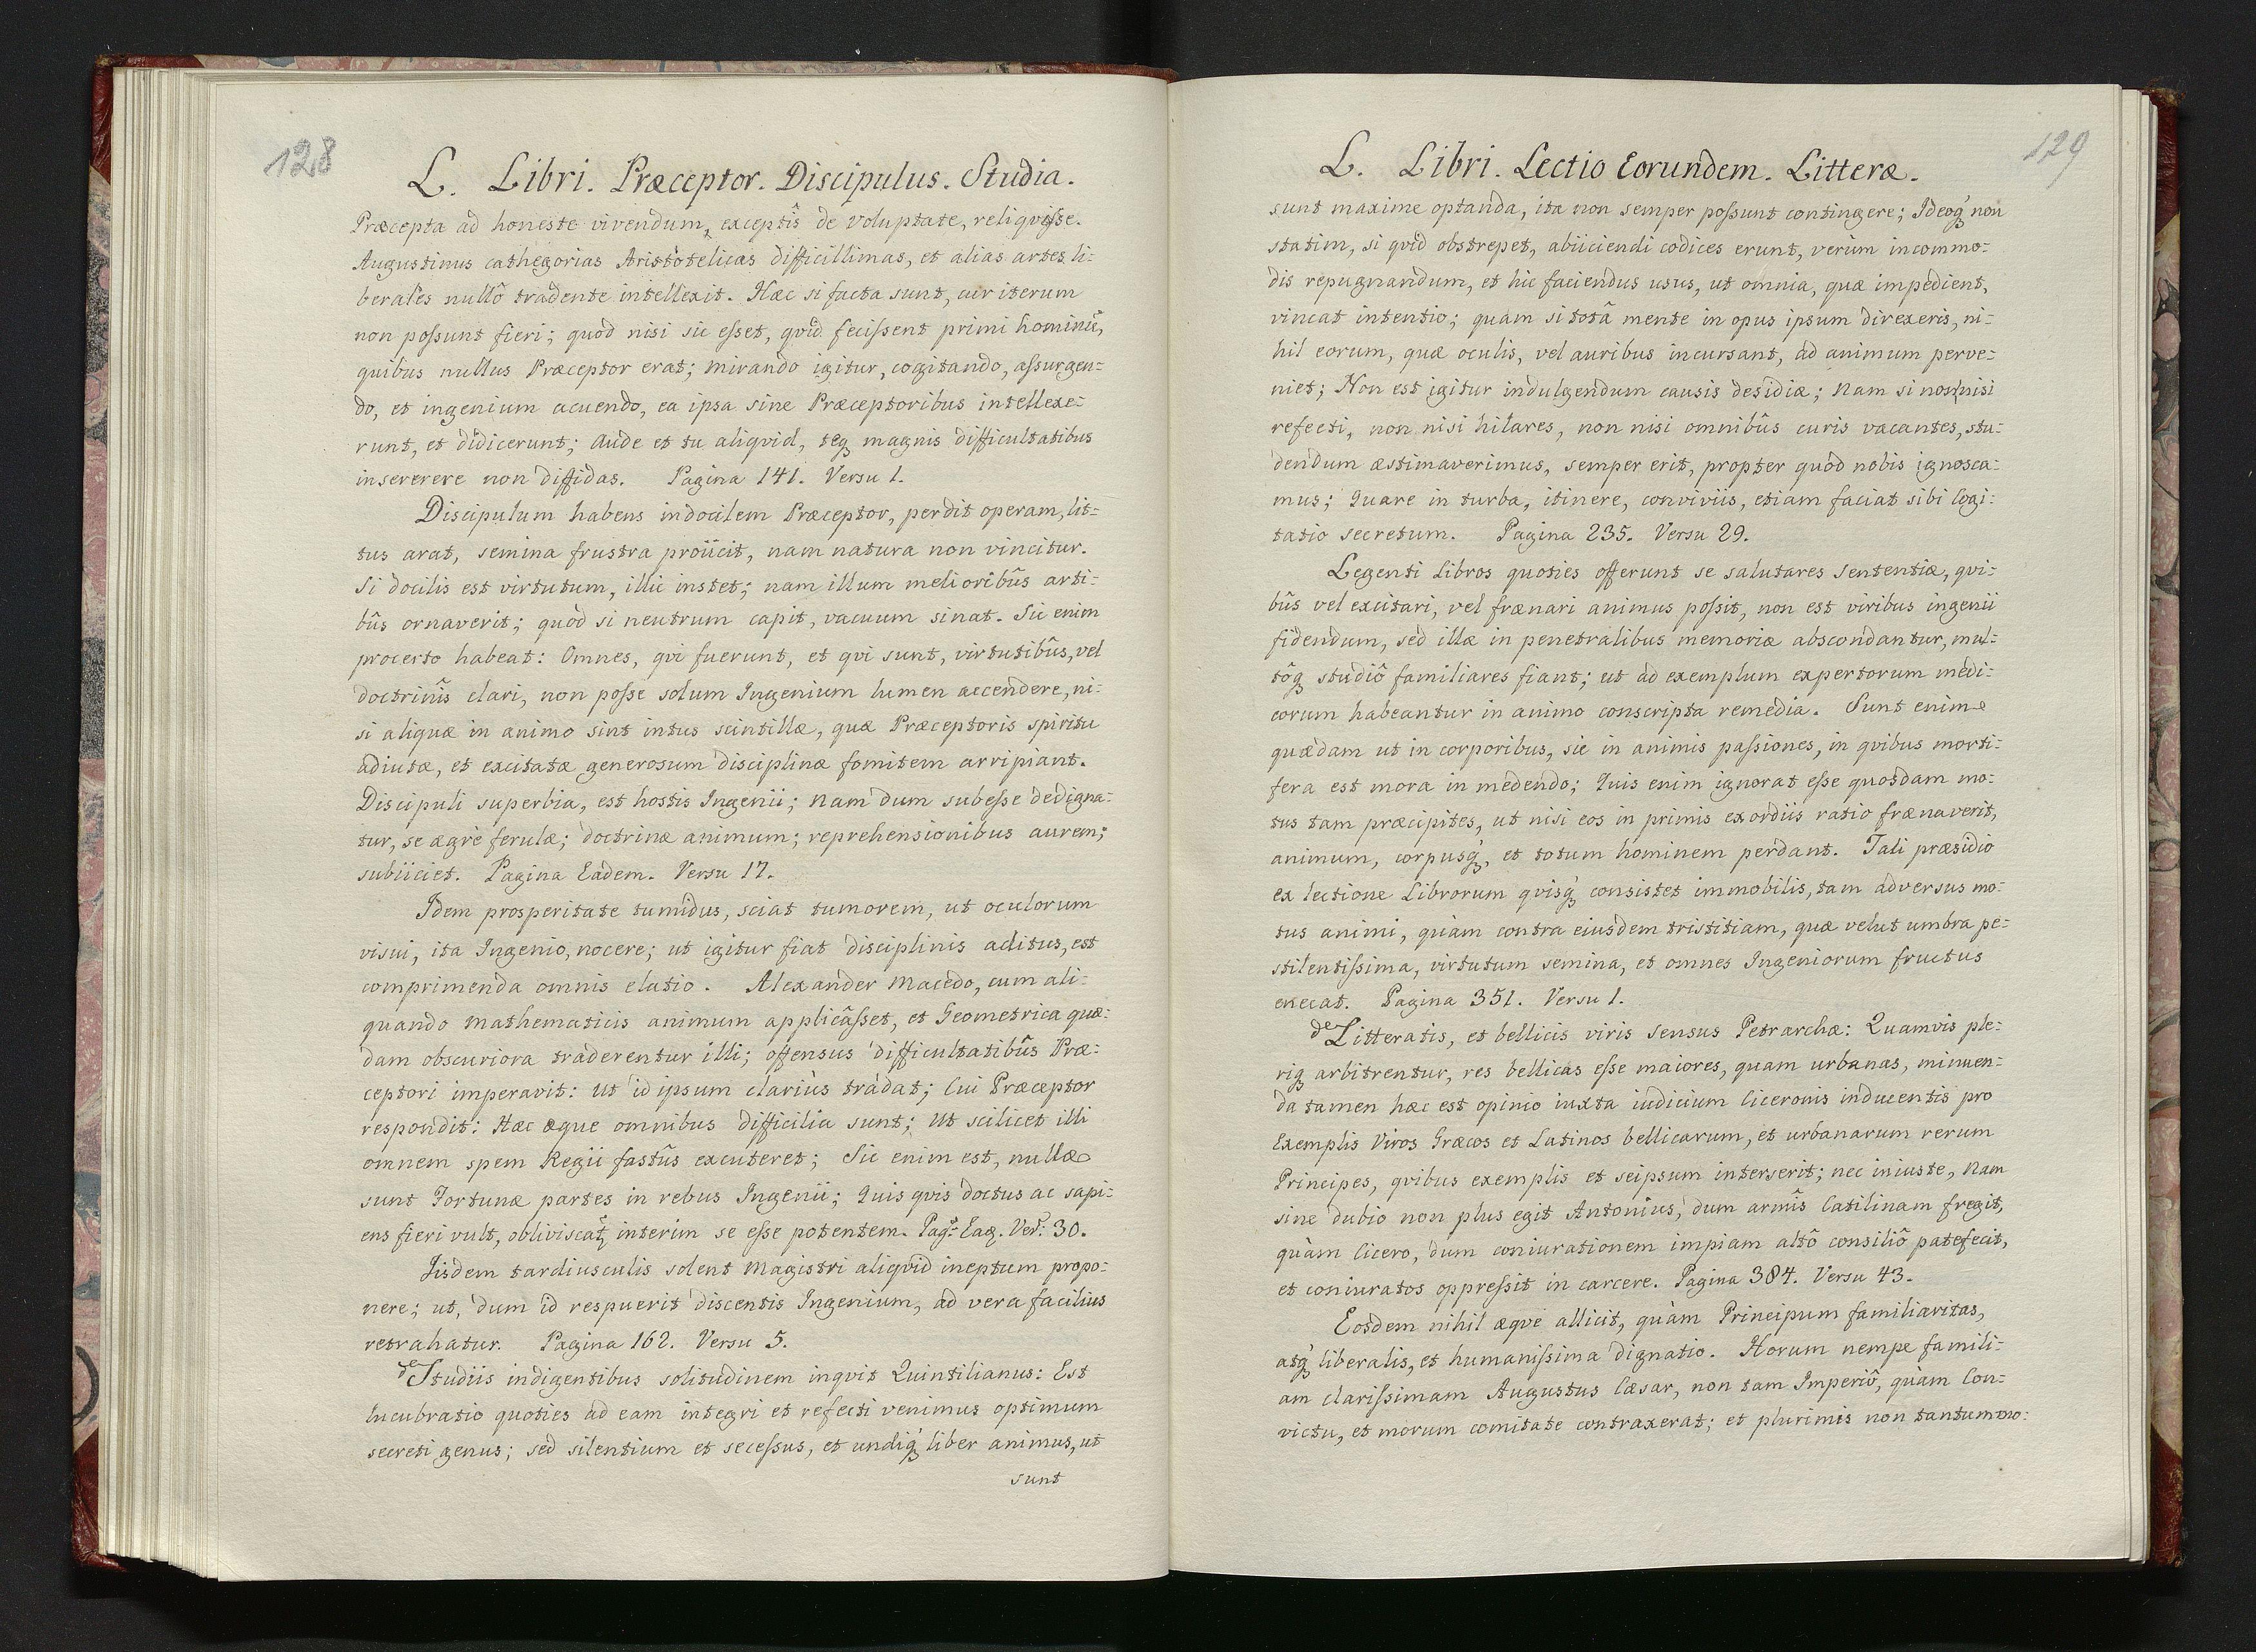 128
L. Libri. Præceptor. Discipulus. Studia.
Præcepta ad honeste vivendum, exceptîs de voluptate, reliqvisse.
Augustinus cathegorias Aristotelicas difficillimas, et alias artes li-
berales nullô tradente intellexit. Hæc si facta sunt, cur iterum
non possunt fieri; quod nisi sic esset, qvid fecissent primi hominũ,
quibus nullus Præceptor erat; mirando igitur, cogitando, assurgen-
do, et ingenium acuendo, ea ipsa sine Præceptoribus intellexe-
runt, et didicerunt; Aude et tu aliqvid, teq magnis difficultatibus
insererere non diffidas. Pagina 141. Versu 1.
Discipulum habens indocilem Præceptor, perdit operam, lit-
tus arat, semina frustra proiicit, nam natura non vincitur.
Si docilis est virtutum, illic instet; nam illum melioribûs arti-
bûs ornaverit; quod si neutrum capit, vacuum sinat. Sic enim
procerto habeat: Omnes, qvi fuerunt, et qvi sunt, virtutibûs, vel
doctrinîs clari, non posse solum Ingenium lumen accendere, ni-
si aliquæ in animo sint intus scintillæ, quæ Præceptoris spiritu
adiutæ, et excitatæ generosum disciplinæ fomitem arripiant.
Discipuli superbia, est hostis Ingenii; nam dum subesse dedigna-
tur, se ægrè ferulæ; doctrinæ animum; reprehensionibus aurem;
subiiciet. Pagina Eadem. Versu 17.
Idem prosperitate tumidus, sciat tumorem, ut oculorum
visui, ita Ingenio, nocere; ut igitur fiat disciplinis aditus, est
comprimenda omnis elatio. Alexander Macedo, cum ali-
quando Mathematicis animum applicâsset, et Geometrica quæ-
dam obscuriora traderentur illi; offensus difficultatibûs Præ-
ceptori imperavit: ut id ipsum clariùs tradat; Cui Præceptor
respondit: Hæc æque omnibus difficilia sunt; Ut scilicet illi
omnem spem Regii fastûs excuteret; Sic enim est, nullæ
sunt Fortunæ partes in rebus Ingenii; Quis qvis doctus ac sapi-
ens fieri vult, obliviscat interim se esse potentem. Pagᵃ: Eaq. Verˢ: 30.
Iisdem tardiusculis solent Magistri aliqvid ineptum propo-
nere; ut, dum id respuerit discentis Ingenium, ad vera facilius
retrahatur. Pagina 162. Versu 5.
de Studiis indigentibus solitudinem inqvit Quintilianus: Est
lucubratio quoties ad eam integri et refecti venimus optimum
secreti genus; sed silentium et secessus, et undiq liber animus, ut
sunt
129
L. Libri. Lectio Eorundem. Litteræ.
sunt maxime optanda, ita non semper possunt contingere; Ideoq non
statim, si qvid obstrepet, abiiciendi codices erunt, verùm incommo-
dis repugnandum, et hic faciendus usus, ut omnia, quæ impedient,
vincat intentio; quam si totâ mente in opus ipsum direxeris, ni-
hil eorum, quæ oculis, vel auribus incursant, ad animum perve-
niet; Non est igitur indulgendum causis desidiæ; Nam si non nisi
refecti, non nisi hilares, non nisi omnibûs curis vacantes, stu-
dendum æstimaverimus, semper erit, propter quod nobis ignosca-
mus; Quare in turba, itinere, conviviis, etiam faciat sibi Cogi-
tatio secretum. Pagina 235. Versu 29.
Legenti Libros quoties offerunt se salutares Sententiæ, qvi-
bûs vel excitari, vel frænari animus possit, non est viribus ingenii
fidendum, sed illæ in penetralibus memoriæ abscondantur, mul-
tôq studiô familiares fiant; ut ad exemplum expertorum medi-
corum habeantur in animo conscripta remedia. Sunt enim
quædam ut in corporibus, sic in animis passiones, in qvibus morti-
fera est mora in medendo; Quis enim ignorat esse quosdam mo-
tus tam præcipites, ut nisi eos in primis exordiis ratio frænaverit,
animum, corpusq, et totum hominem perdant. Tali præsidio
ex lectione Librorum qvisq consistet immobilis, tam adversus mo-
tus animi, quàm contra eiusdem tristitiam, quæ velut umbra pe-
stilentissima, virtutum semina, et omnes Ingeniorum fructus
enecat. Pagina 351. Versu 1.
de Litteratis, et bellicis viris sensus Petrarchæ: Quamvis ple-
riq arbitrentur, res bellicas esse maiores, quam urbanas, minuen-
da tamen hæc est opinio iuxta iudicium Ciceronis inducentis pro
Exemplis Viros Græcos et Latinos bellicarum, et urbanarum rerum
Principes, qvibus exemplis et seipsum interserit; nec iniuste, Nam
sine dubio non plus egit Antonius, dum armîs Catilinam fregit,
quàm Cicero, dum coniurationem impiam altô consiliô patefecit,
et coniuratos oppressit in carcere. Pagina 384. Versu 43.
Eosdem nihil æqve allicit, quàm Principum familiaritas,
atq liberalis, et humanissima dignatio. Horum nempe famili-
am clarissimam Augustus Cæsar, non tam Imperiô, quàm Con-
victu, et morum comitate contraxerat; et plurimis non tantummo-